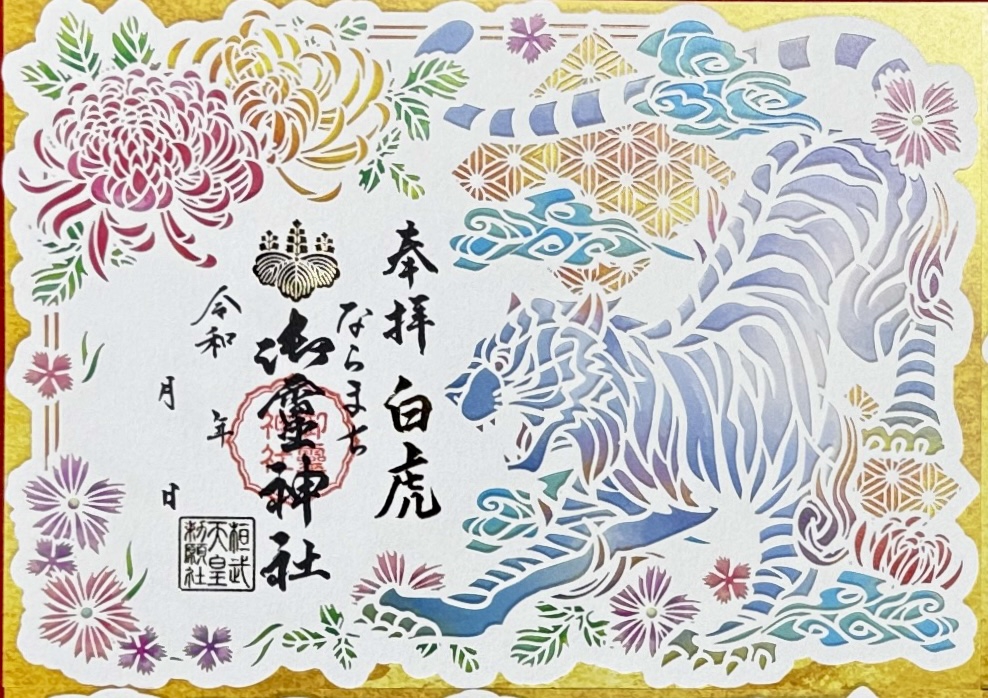 奉拝 白虎
ならまち
御霊神社
御靈神社
令和 年
月 日
桓武天皇勅願社